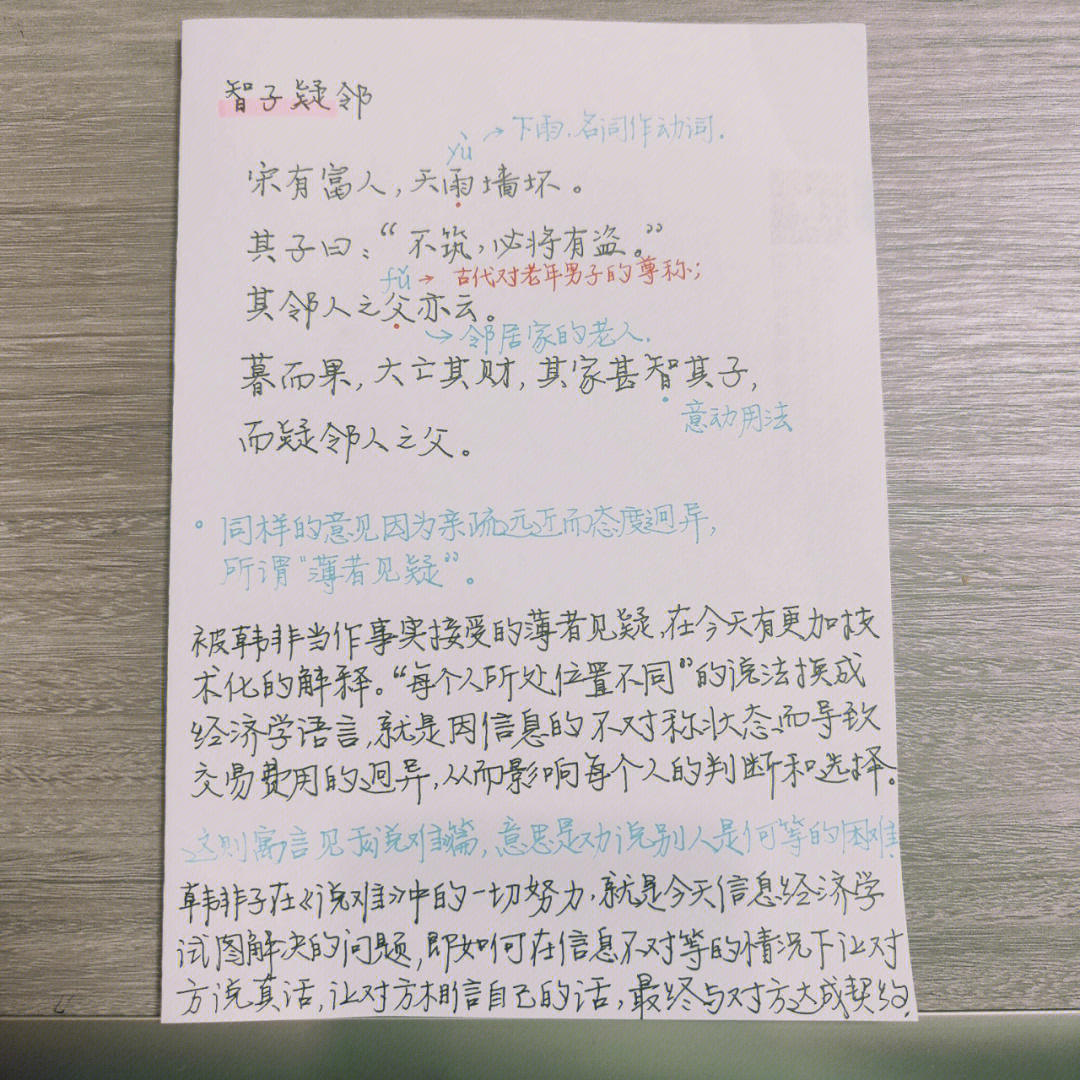 智子疑邻
yù → 下雨，名词作动词.
宋有富人，天雨墙坏。
其子曰：“不筑，必将有盗。”
fǔ → 古代对老年男子的尊称；
其邻人之父亦云。
→ 邻居家的老人.
暮而果，大亡其财，其家甚智其子，
意动用法
而疑邻人之父。
。同样的意见因为亲疏远近而态度迥异，
所谓“薄者见疑”。
被韩非当作事实接受的薄者见疑，在今天有更加技
术化的解释。“每个人所处位置不同”的说法换成
经济学语言，就是因信息的不对称状态而导致
交易费用的迥异，从而影响每个人的判断和选择。
这则寓言见于说难篇，意思是劝说别人是何等的困难.
韩非子在《说难》中的一切努力，就是今天信息经济学
试图解决的问题，即如何在信息不对等的情况下让对
方说真话，让对方相信自己的话，最终与对方达成契约.